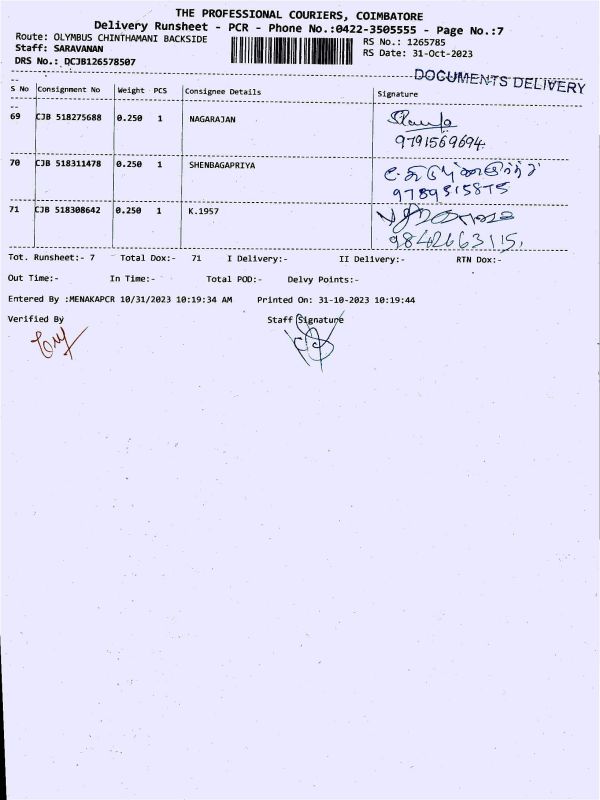 THE PROFESSIONAL COURIERS, COIMBATORE
Delivery Runsheet - PCR - Phone No.:0422-3505555 - Page No.:7
Route: OLYMBUS CHINTHAMANI BACKSIDE
RS No.: 1265785
Staff: SARAVANAN
RS Date: 31-Oct-2023
DRS No.: DCJB126578507
DOCUMENTS DELIVERY
S No Consignment No Weight PCS Consignee Details Signature
69 CJB 518275688 0.250 1 NAGARAJAN
9791569694
70 CJB 518311478 0.250 1 SHENBAGAPRIYA
9789515875
71 CJB 518308642 0.250 1 K.1957
9842663115
Tot. Runsheet:- 7 Total Dox:- 71 I Delivery:- II Delivery:- RTN Dox:-
Out Time:- In Time:- Total POD:- Delvy Points:-
Entered By :MENAKAPCR 10/31/2023 10:19:34 AM Printed On: 31-10-2023 10:19:44
Verified By Staff Signature